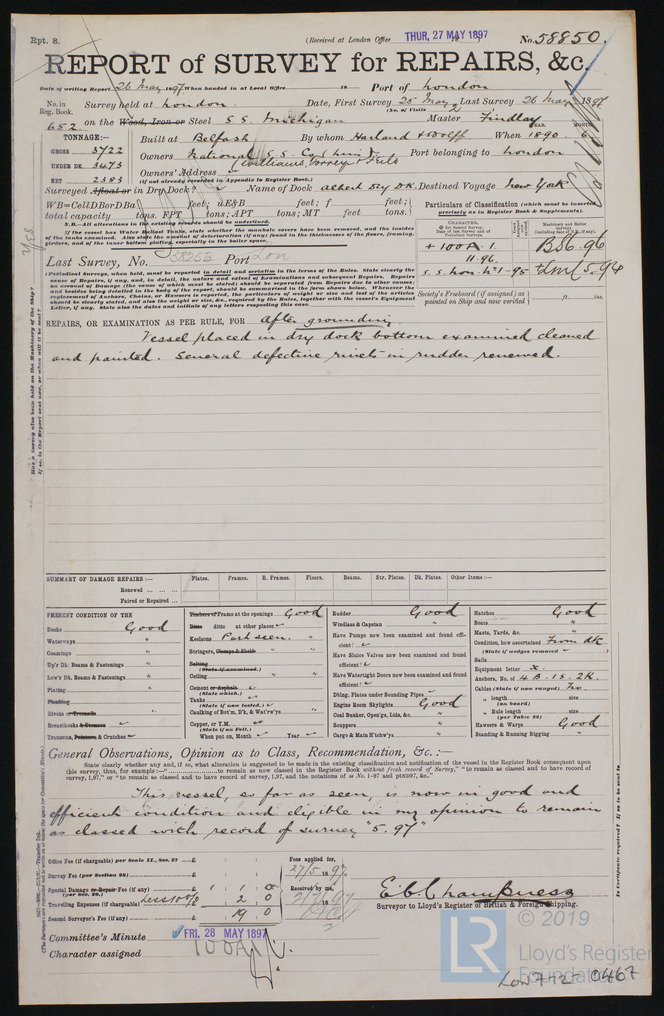 Rpt. 8.
(Received at London Office THUR, 27 MAY 1897)
No. 58850.
REPORT of SURVEY for REPAIRS, &c.
Date of writing Report 26 May 1897 When handed in at Local Office 18 Port of London
No. in Reg. Book. Survey held at London. Date, First Survey 25 May Last Survey 26 May 1897
(No. of Visits 2)
652 on the Wood, Iron or Steel S S. Michigan Master Findlay
TONNAGE:—
GROSS 3722
UNDER DK. 3473
NET 2383
Built at Belfast By whom Harland & Wolff When 1890. 6
YEAR. MONTH
Owners National S. S. Co (Lim) Port belonging to London
(Williams, Torrey & Feild
Owners' Address
(if not already recorded in Appendix to Register Book.)
Surveyed Afloat or in Dry Dock? Name of Dock Albert Dry Dk. Destined Voyage New York
WB=CellDBorDBa feet; uE&B feet; f feet;
total capacity tons. FPT tons; APT tons; MT feet tons.
N.B.—All alterations in the existing records should be underlined.
If the vessel has Water Ballast Tanks, state whether the manhole covers have been removed, and the insides
of the tanks examined. Also state the amount of deterioration (if any) found in the thicknesses of the floors, framing,
girders, and of the inner bottom plating, especially in the boiler space.
Particulars of Classification (which must be inserted
precisely as in Register Book & Supplements).
CHARACTER.
+ 100A 1.
11.96.
S. S. Lon. No 1-95
BS6.96
+LMC 5.94
Society's Freeboard (if assigned) as
painted on Ship and now verified ft. ins.
Last Survey, No. 58263 Port Lon
(Periodical Surveys, when held, must be reported in detail and seriatim in the terms of the Rules. State clearly the
cause of Repairs, if any, and, in detail, the nature and extent of Examinations and subsequent Repairs. Repairs
on account of Damage (the cause of which must be stated) should be separated from Repairs due to other causes;
and besides being detailed in the body of the report, should be summarized in the form shown below. Whenever the
replacement of Anchors, Chains, or Hawsers is reported, the particulars of weight or size and test of the articles
should be clearly stated, and also the weight or size, &c., required by the Rules, together with the vessel's Equipment
Letter, if any. State also the dates and initials of any letters respecting this case.
REPAIRS, OR EXAMINATION AS PER RULE, FOR after grounding.
Vessel placed in dry dock bottom examined cleaned
and painted. Several defective rivets in rudder renewed.
SUMMARY OF DAMAGE REPAIRS:— Plates. Frames. R. Frames. Floors. Beams. Str. Plates. Dk. Plates. Other Items:—
Renewed ... ... ...
Faired or Repaired ...
PRESENT CONDITION OF THE
Decks Good
Waterways "
Coamings "
Up'r Dk. Beams & Fastenings "
Low'r Dk. Beams & Fastenings "
Plating "
Planking
Rivets or Treenails "
Breasthooks & Stemson
Transoms, Pointers, & Crutches
Timbers or Frame at the openings Good
Ditto ditto at other places
Keelsons Part seen. "
Stringers, Clamps & Shelfs "
Salting
(State if examined.)
Ceiling "
Cement or Asphalt
(State which.)
Tanks
(State if now tested.)
Caulking of Bot'm, D'k, & Wat'rw'ys
Copper, or Y.M.
(State if on Felt.)
When put on, Month Year
Rudder Good
Windlass & Capstan "
Have Pumps now been examined and found efficient?
Have Sluice Valves now been examined and found efficient?
Have Watertight Doors now been examined and found efficient?
Dblng. Plates under Sounding Pipes
Engine Room Skylights Good
Coal Bunker, Open'gs, Lids, &c. "
Scuppers "
Cargo & Main H'tchw'ys "
Hatches Good
Boats "
Masts, Yards, &c. "
Condition, how ascertained From dk
(State if wedges removed)
Sails
Equipment letter X.
Anchors, No. of 4 B. 1S. 2K.
Cables (State if now ranged) No.
" length size
(on board)
" Rule length size
(per Table 22)
Hawsers & Warps Good
Standing & Running Rigging "
General Observations, Opinion as to Class, Recommendation, &c.:—
State clearly whether any, and if so, what alteration is suggested to be made in the existing classification and notification of the vessel in the Register Book consequent upon
this survey, thus, for example:—" to remain as now classed in the Register Book without fresh record of Survey," "to remain as classed and to have record of
survey, 1,97," or "to remain as classed and to have record of survey, 1,97, and the notations of
This vessel, so far as seen, is now in good and
efficient condition and eligible in my opinion to remain
as classed with record of survey "5.97"
Office Fee (if chargeable) per Scale II., Sec. 27 £ : :
Survey Fee (per Section 28) £ : :
Special Damage or Repair Fee (if any) (per Sec. 28.) £ 1 : 1 : 0
Travelling Expenses (if chargeable) Less 10% £ : 2 : 0
Second Surveyor's Fee (if any) £ : 19 : 0
Fees applied for,
27/5 1897.
Received by me,
E. C. Champness
Surveyor to Lloyd's Register of British & Foreign Shipping.
Committee's Minute FRI, 28 MAY 1897
Character assigned 100A1
© 2019
LR
Lloyd's Register
Foundation
LON 772-0467